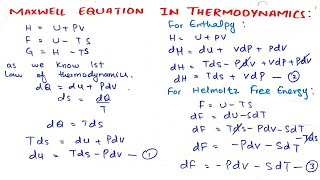 MAXWELL EQUATION IN THERMODYNAMICS:
H = U + PV
F = U - TS
G = H - TS
as we know 1st
Law of thermodynamics.
dQ = du + Pdv
ds = dQ/T
dQ = Tds
Tds = du + Pdv
du = Tds - Pdv - ①
For Enthalpy:
H = U + PV
dH = du + vdP + Pdv
dH = Tds - Pdv + vdP + Pdv
dH = Tds + vdP - ②
For Helmoltz Free Energy:
F = U - TS
dF = du - SdT - Tds
dF = Tds - Pdv - SdT - Tds
dF = -Pdv - SdT
dF = -Pdv - SdT - ③